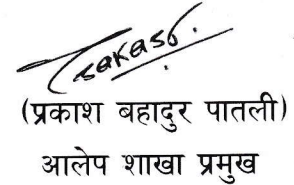 (प्रकाश बहादुर पातली)
आलेप शाखा प्रमुख